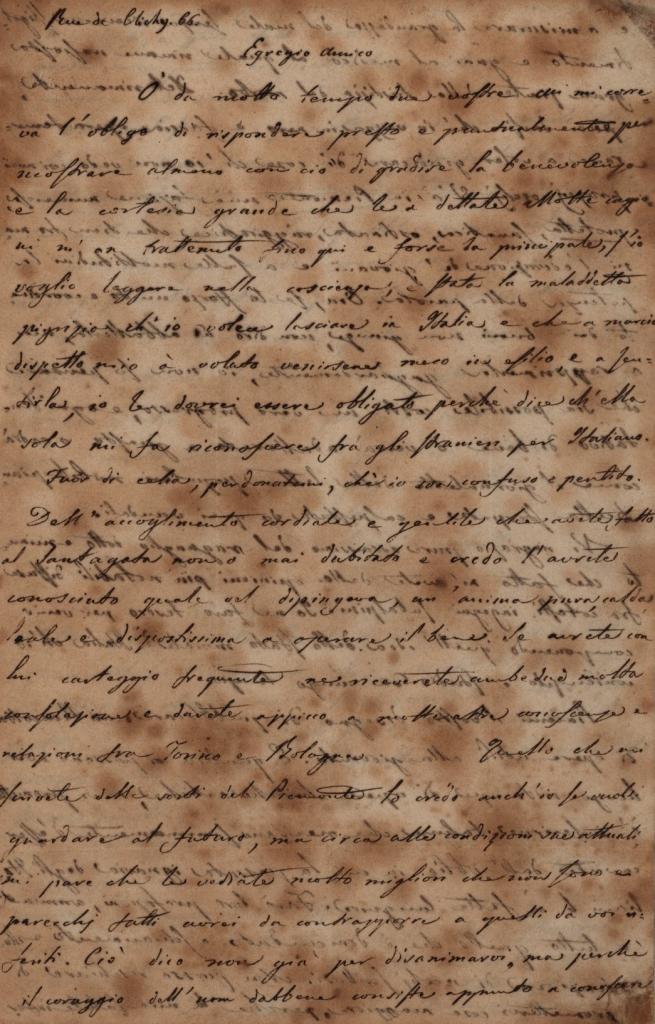 Rue de Clichy. 66.
Egregio Amico
O da molto tempo due vostre cui mi corre-
va l'obbligo di rispondere presto e puntualmente per
mostrare almeno con ciò di gradire la benevolenza
e la cortesia grande che le à dettate. Molte cagio
ni m'àn trattenuto fino qui e forse la principale, s'io
voglio leggere nella coscienza, è stata la maladetta
pigrizia ch'io volea lasciare in Italia e che a marcio
dispetto mio à volato venirsene meco in esilio e a sen-
tirla, io le dovrei essere obligato perchè dice ch'ella
sola mi fa riconoscere fra gli stranieri per Italiano.
Fuor di celia, perdonatemi, ch'io son confuso e pentito.
Dell'accoglimento cordiale e gentile che avete fatto
al non ò mai dubitato e credo l'avrete
conosciuto quale vel dipingeva un'anima pura calda
leale e dispostissima a operare il bene. Se avrete con
lui carteggio frequente ne riceverete ambedue molta
consolazione e darete a conoscenze e
relazioni fra Torino e Bologna. Quello che mi
scrivete delle sorti del Piemonte lo credo anch'io se vuolsi
guardare al futuro, ma circa alle condizioni sue attuali
mi pare che le vediate molto migliori che non sono e
parecchj fatti avrei da contrapporre a quelli da voi ri-
feriti. Ciò dico non già per disanimarvi, ma perchè
il coraggio dell'uom dabbene consiste appunto a conoscere